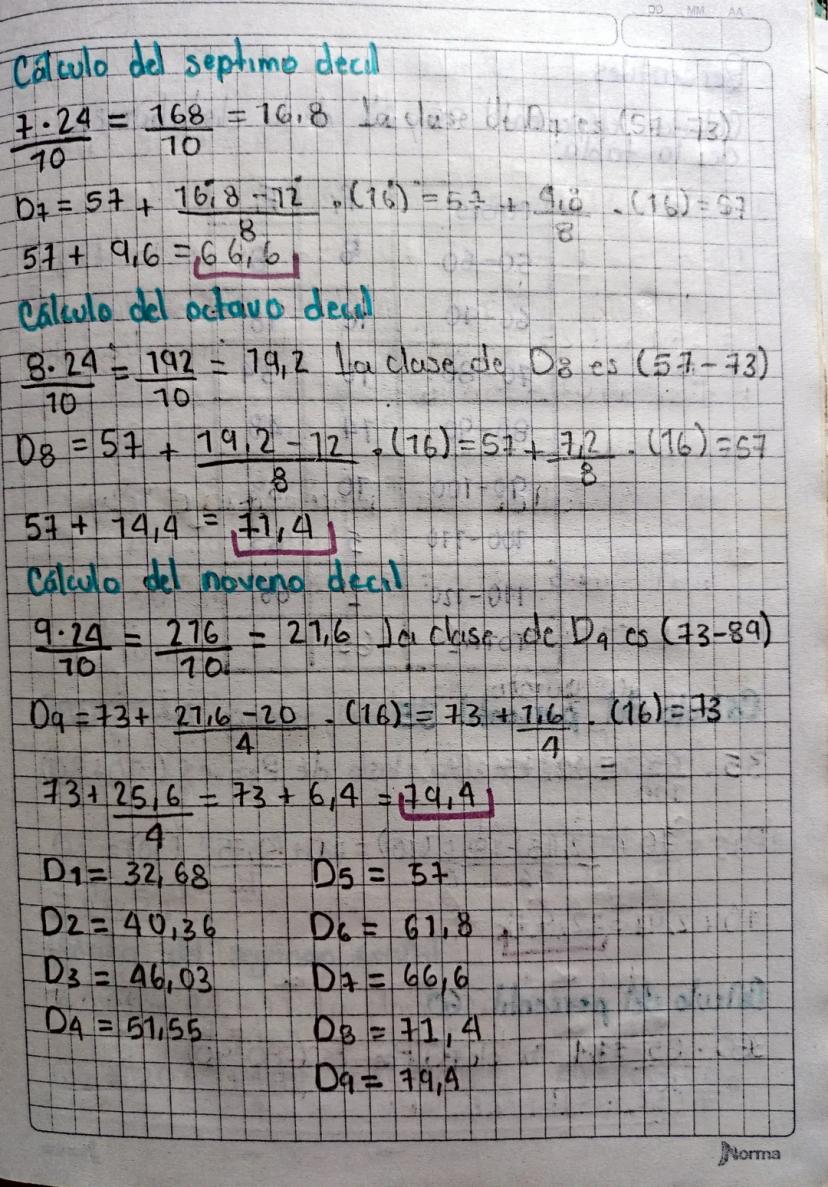 DD MM AA
Cálculo del septimo decil
7·24/10 = 168/10 = 16,8 La clase de D7 es (57-73)
D7 = 57 + 16,8-12/8 · (16) = 57 + 4,8/8 · (16) = 57
57 + 9,6 = 66,6
Cálculo del octavo decil
8·24/10 = 192/10 = 19,2 La clase de D8 es (57-73)
D8 = 57 + 19,2-12/8 · (16) = 57 + 7,2/8 · (16) = 57
57 + 14,4 = 71,4
Cálculo del noveno decil
9·24/10 = 216/10 = 21,6 La clase de D9 es (73-89)
D9 = 73 + 21,6-20/4 · (16) = 73 + 1,6/4 · (16) = 73
73 + 25,6/4 = 73 + 6,4 = 79,4
D1 = 32,68 D5 = 57
D2 = 40,36 D6 = 61,8
D3 = 46,03 D7 = 66,6
D4 = 51,55 D8 = 71,4
D9 = 79,4
Norma